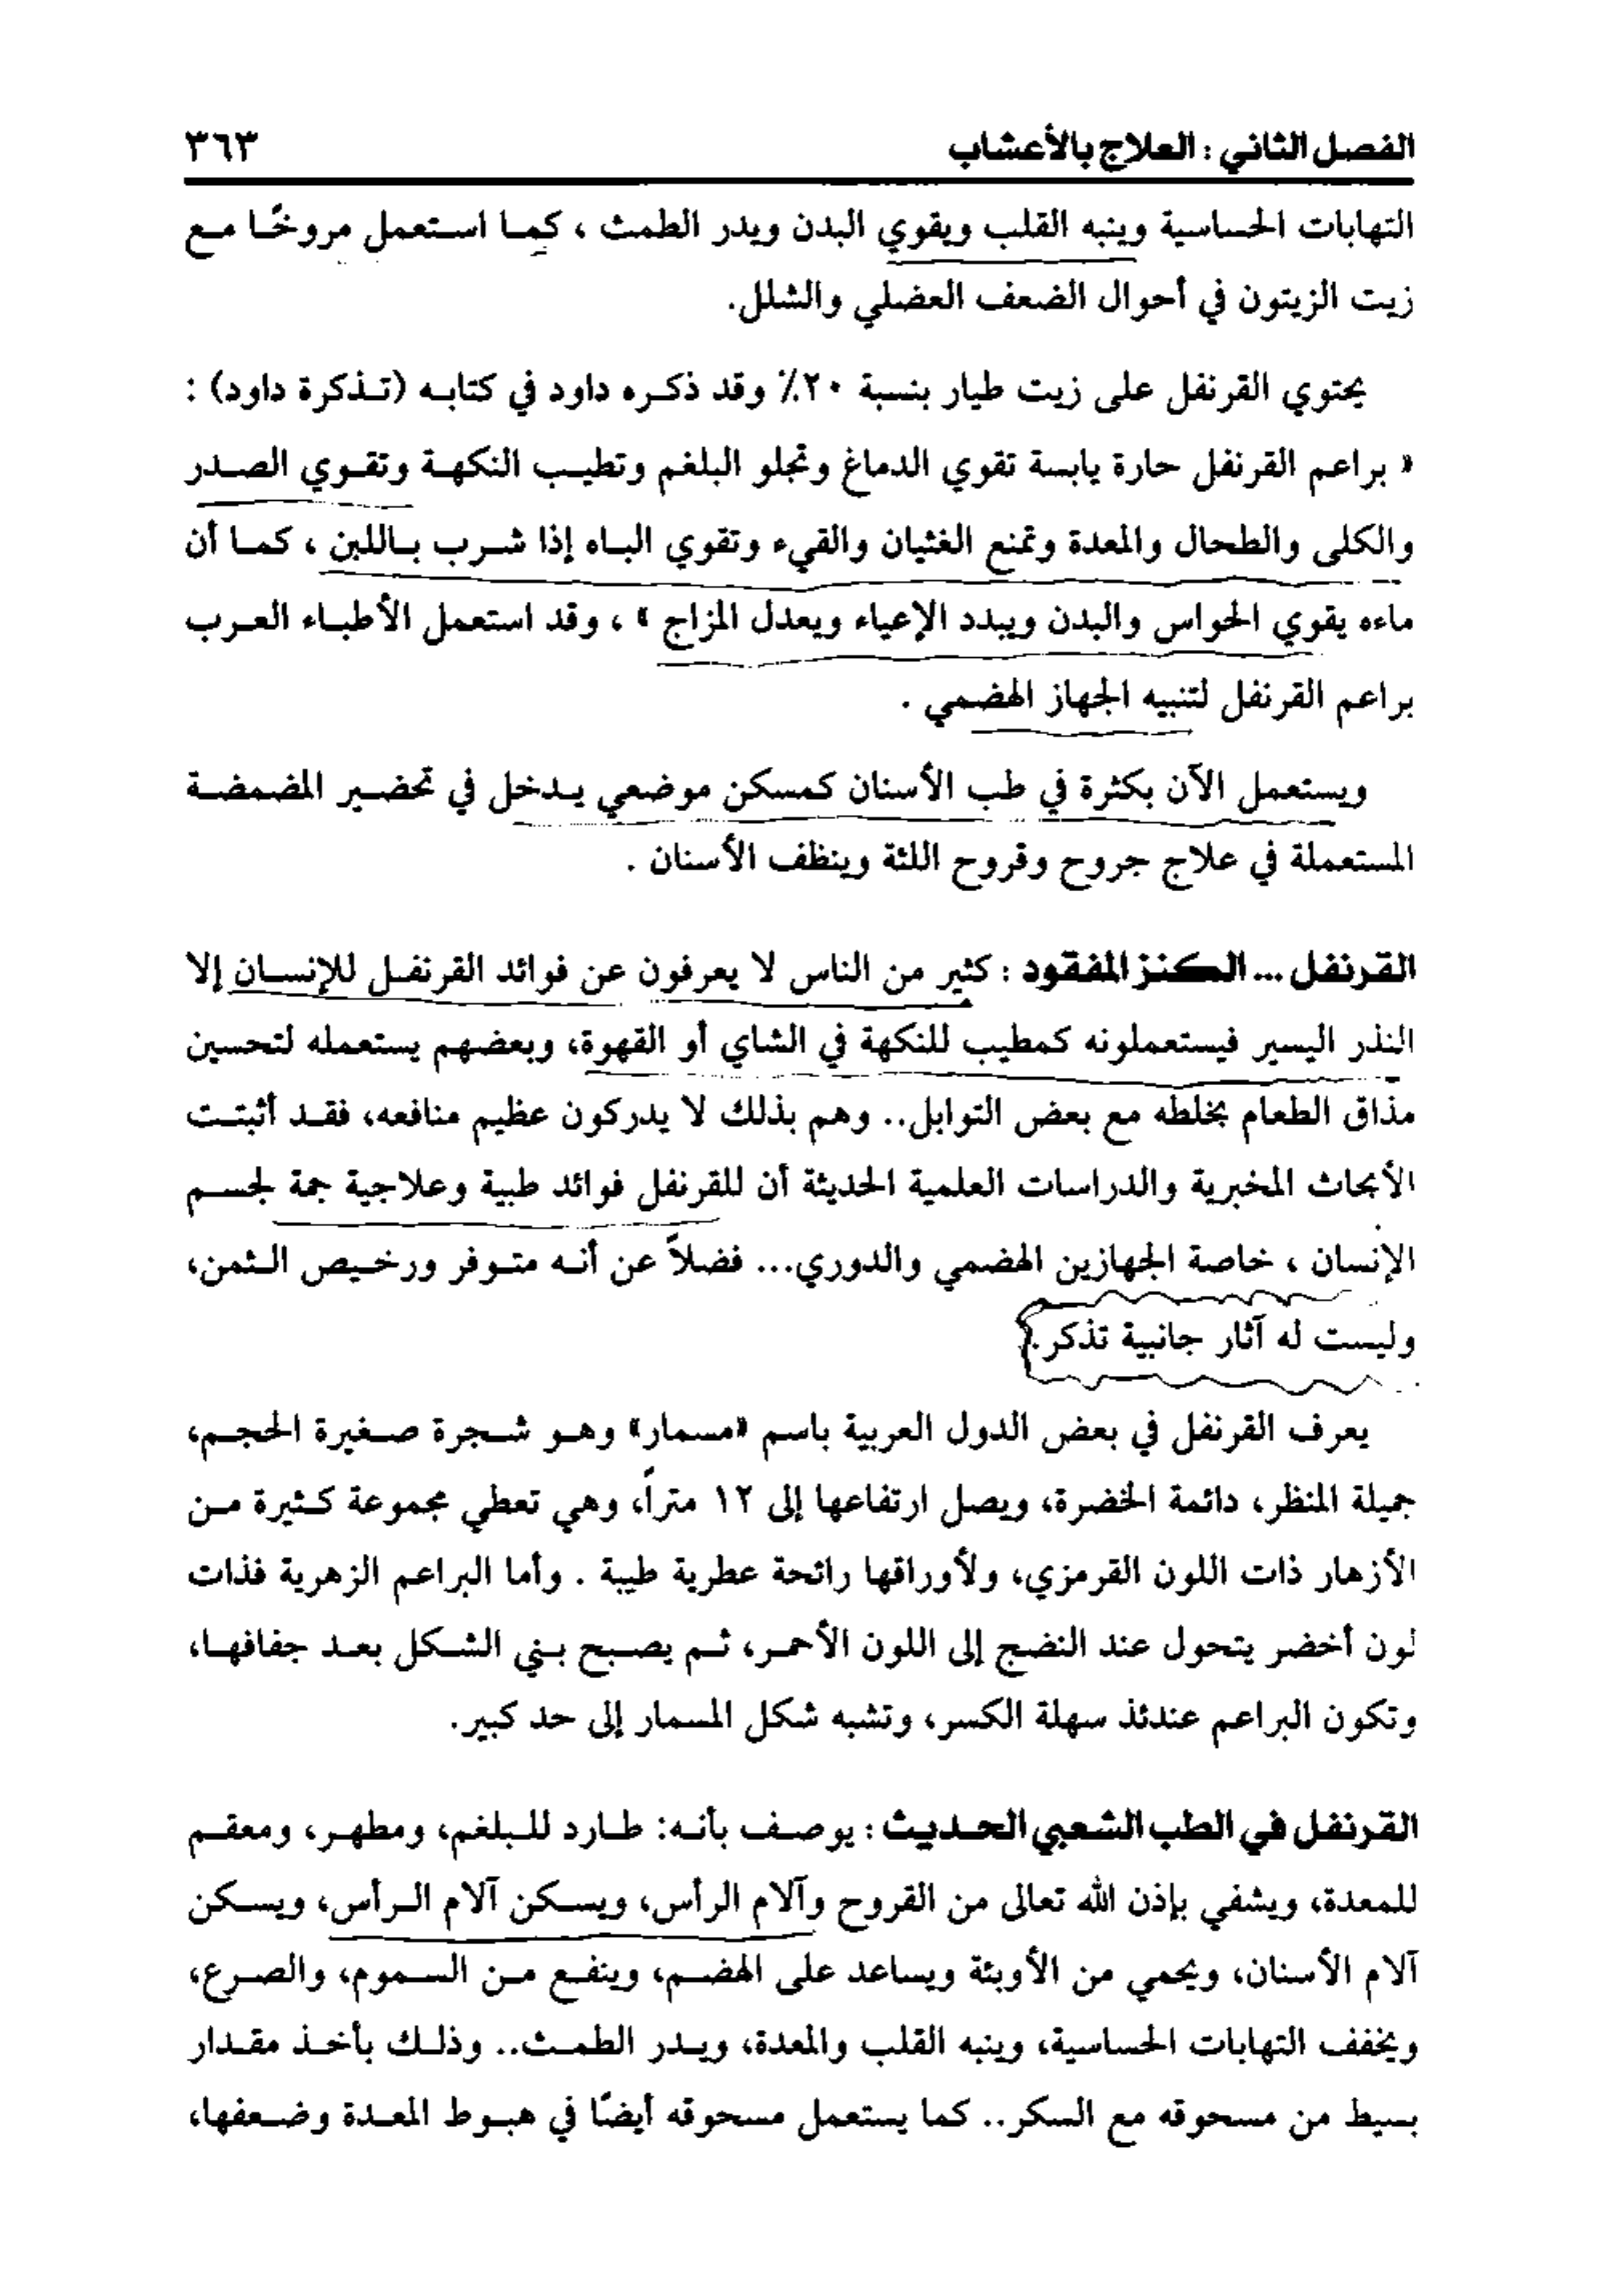 الفصل الثاني : العلاج بالأعشاب ٣٦٣
التهابات الحساسية وينبه القلب ويقوي البدن ويدر الطمث ، كما استعمل مروخًا مع
زيت الزيتون في أحوال الضعف العضلي والشلل.
يحتوي القرنفل على زيت طيار بنسبة ٢٠٪ وقد ذكره داود في كتابه (تذكرة داود) :
« براعم القرنفل حارة يابسة تقوي الدماغ وتجلو البلغم وتطيب النكهة وتقوي الصدر
والكلى والطحال والمعدة وتمنع الغثيان والقيء وتقوي الباه إذا شرب باللبن ، كما أن
ماءه يقوي الحواس والبدن ويبدد الإعياء ويعدل المزاج » ، وقد استعمل الأطباء العرب
براعم القرنفل لتنبيه الجهاز الهضمي .
ويستعمل الآن بكثرة في طب الأسنان كمسكن موضعي يدخل في تحضير المضمضة
المستعملة في علاج جروح وقروح اللثة وينظف الأسنان .
القرنفل ... الكنز المفقود : كثير من الناس لا يعرفون عن فوائد القرنفل للإنسان إلا
النذر اليسير فيستعملونه كمطيب للنكهة في الشاي أو القهوة، وبعضهم يستعمله لتحسين
مذاق الطعام بخلطه مع بعض التوابل.. وهم بذلك لا يدركون عظيم منافعه، فقد أثبتت
الأبحاث المخبرية والدراسات العلمية الحديثة أن للقرنفل فوائد طبية وعلاجية جمة لجسم
الإنسان ، خاصة الجهازين الهضمي والدوري... فضلاً عن أنه متوفر ورخيص الثمن،
وليست له آثار جانبية تذكر.
يعرف القرنفل في بعض الدول العربية باسم «مسمار» وهو شجرة صغيرة الحجم،
جميلة المنظر، دائمة الخضرة، ويصل ارتفاعها إلى ١٢ متراً، وهي تعطي مجموعة كثيرة من
الأزهار ذات اللون القرمزي، ولأوراقها رائحة عطرية طيبة . وأما البراعم الزهرية فذات
لون أخضر يتحول عند النضج إلى اللون الأحمر، ثم يصبح بني الشكل بعد جفافها،
وتكون البراعم عندئذ سهلة الكسر، وتشبه شكل المسمار إلى حد كبير.
القرنفل في الطب الشعبي الحديث : يوصف بأنه: طارد للبلغم، ومطهر، ومعقم
للمعدة، ويشفي بإذن الله تعالى من القروح وآلام الرأس، ويسكن آلام الرأس، ويسكن
آلام الأسنان، ويحمي من الأوبئة ويساعد على الهضم، وينفع من السموم، والصرع،
ويخفف التهابات الحساسية، وينبه القلب والمعدة، ويدر الطمث.. وذلك بأخذ مقدار
بسيط من مسحوقه مع السكر.. كما يستعمل مسحوقه أيضًا في هبوط المعدة وضعفها،